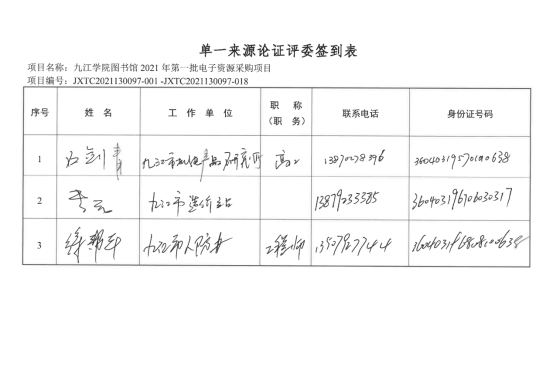 单一来源论证评委签到表
项目名称：九江学院图书馆 2021 年第一批电子资源采购项目
项目编号：JXTC2021130097-001 -JXTC2021130097-018
序号 姓 名 工 作 单 位 职 称 （职 务） 联系电话 身份证号码
1 高工
2 李云 九江市造价站 13879233385 360403196706030317
3 九江市人防办 工程师 13507927744